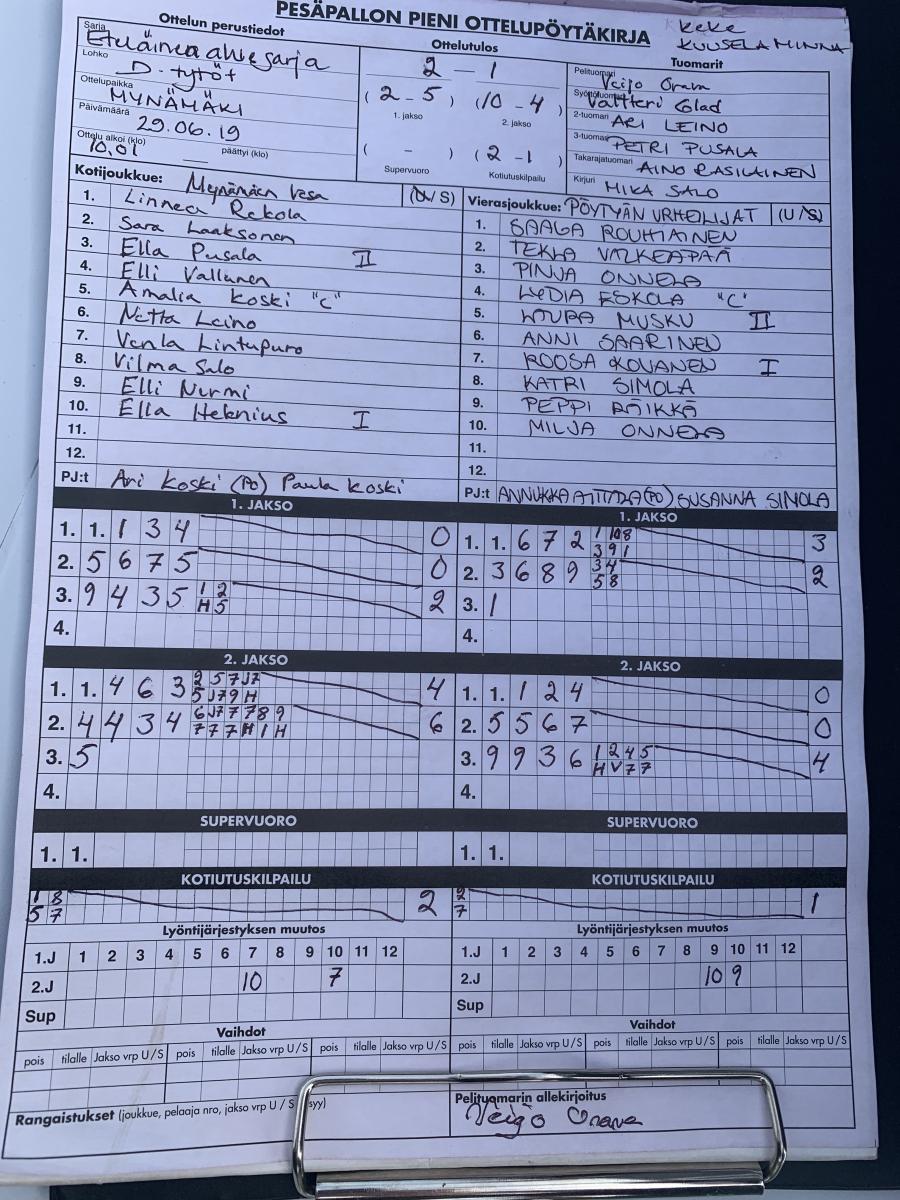 PESÄPALLON PIENI OTTELUPÖYTÄKIRJA
Keke
KUUSELA MINNA
Ottelun perustiedot
Sarja
Lohko D-tytöt
Ottelupaikka MYNÄMÄKI
Päivämäärä 29.06.19
Ottelu alkoi (klo) päättyi (klo)
10.01
Ottelutulos
2 - 1
(2 - 5) (10 - 4)
1. jakso 2. jakso
( - ) (2 - 1)
Supervuoro Kotiutuskilpailu
Tuomarit
Pelituomari Veijo
Syöttötuomari Valtteri Glad
2-tuomari ARI LEINO
3-tuomari PETRI PUSALA
Takarajatuomari AINO RASILAINEN
Kirjuri MIKA SALO
Kotijoukkue: Mynämäen Vesa / S)
1. Linnea Rekola
2. Sara Laaksonen
3. Ella Pusala II
4. Elli Vallunen
5. Amalia Koski "C"
6. Netta Leino
7. Venla Lintupuro
8. Vilma Salo
9. Elli Nurmi
10. Ella Helenius I
11.
12.
PJ:t Ari Koski (PO) Paula Koski
Vierasjoukkue: PÖYTYÄN URHEILIJAT (U / S)
1. SAAGA ROUHIAINEN
2. TEKLA VALKEAPÄÄ
3. PINJA ONNELA
4. LYDIA ESKOLA "C"
5. MUSKU II
6. ANNI SAARINEN
7. ROOSA KOVANEN I
8. KATRI SIMOLA
9. PEPPI RÄIKKÄ
10. MILJA ONNELA
11.
12.
PJ:t ANNUKKA (PO) SUSANNA SIMOLA
1. JAKSO
1. 1. 1 3 4 0
2. 5 6 7 5 0
3. 9 4 3 5 1 2 2
H 5
4.
1. JAKSO
1. 1. 6 7 2 1 10 8 3
3 9 1
2. 3 6 8 9 3 4 2
5 8
3. 1
4.
2. JAKSO
1. 1. 4 6 3 2 5 7 J7 4
5 J7 9 H
2. 4 4 3 4 6 J7 7 7 8 9 6
7 7 7 H 1 H
3. 5
4.
2. JAKSO
1. 1. 1 2 4 0
2. 5 5 6 7 0
3. 9 9 3 6 1 2 4 5 4
H V 7 7
4.
SUPERVUORO
1. 1.
SUPERVUORO
1. 1.
KOTIUTUSKILPAILU
1 8 2
5 7
KOTIUTUSKILPAILU
2 1
7
Lyöntijärjestyksen muutos
1.J 1 2 3 4 5 6 7 8 9 10 11 12
2.J 10 7
Sup
Lyöntijärjestyksen muutos
1.J 1 2 3 4 5 6 7 8 9 10 11 12
2.J 10 9
Sup
Vaihdot
pois tilalle Jakso vrp U / S pois tilalle Jakso vrp U / S pois tilalle Jakso vrp U / S
Vaihdot
pois tilalle Jakso vrp U / S pois tilalle Jakso vrp U / S pois tilalle Jakso vrp U / S
Rangaistukset (joukkue, pelaaja nro, jakso vrp U / S syy)
Pelituomarin allekirjoitus